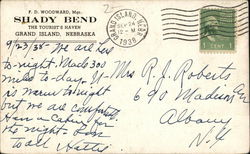 F. D. WOODWARD, Mgr.
SHADY BEND
THE TOURIST'S HAVEN
GRAND ISLAND, NEBRASKA
GRAND ISLAND, NEBR.
SEP 24
12-M
1938
1 CENT 1
9/23/38 - We are here
to-night. Made 300
mile to-day.
is warm to night
but we are comfortable.
Have a Cabin for
the night. Love
to all Hattie
Mrs R. J. Roberts
690 Madison Ave
Albany
N.Y.